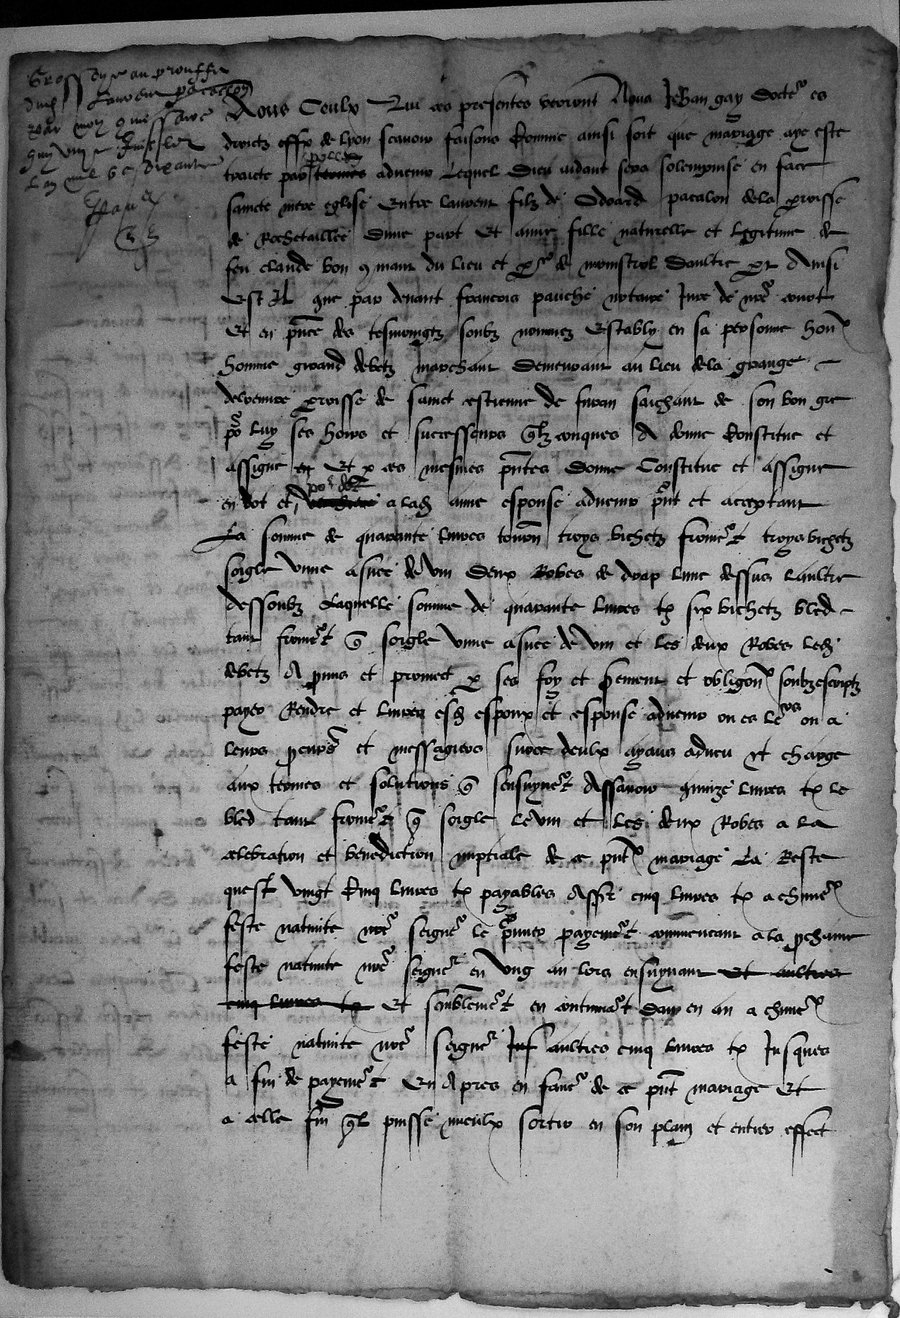 Grossoye au prouffit
dud Laurens pacalon
par moy
A tous Ceulx Qui ces presentes verront Nous Jehan gay docteur es
droictz offi de lyon scavoir faisons Comme ainsi soit que mariage aye este
traicte par parolles advenir Lequel Dieu aidant sera solempnise en face
saincte mere eglise Entre laurens filz de Odoard pacalon de la parroisse
de Rochetaillee Dune part Et anne fille naturelle et legitime de
feu claude bon du lieu et de monistrol Daultre part Ainsi
Est Il que par devant francois panche notaire Jure de nostre court
Et en pnce des tesmoingtz soubz nommez Estably en sa personne hon
homme girard debetz marchant Demeurant au lieu de la grange
parroisse de sainct estienne de furan saichant de son bon gre
po luy ses hoirs et successeurs qlzconques A donne Constitue et
assigne Et p ces mesmes pntes Donne Constitue et assigne
en dot et a lad anne espouse advenir pnt et acceptant
La somme de quarante livres tourn troys bichetz froment troys bichetz
soigle une asnee de vin Deux Robes de drap lune dessus laultre
dessoubz Laquelle somme de quarante livres tz six bichetz bled
tant froment q soigle une asnee de vin et les deux Robes led
debetz A pmis et promect p ses foy et serment et obligon soubzescriptz
payer Rendre et livrer esd espoux et espouse advenir ou es leurs ou a
leurs et messagiers sur ce deulx ayans adveu et charge
aux termes et solutions q sensuyvent Assavoir quinze livres tz le
bled tant froment q soigle le vin et lesd deux Robes a la
celebration et benediction nuptiale de ce pnt mariage La Reste
quest vingt Cinq livres tz payables Assr cinq livres tz a chune
feste nativite nre seigneur le pmier payement commencant a la prchaine
feste nativite nre seigneur en ung an lors ensuyvant Et aultres
cinq livres tz Et semblement en continuant dan en an a chune
feste nativite nre seigneur aultres cinq livres tz Jusques
a fin de payement En Apres en faveur de ce pnt mariage Et
a celle fin ql puisse mieulx sortir en son plain et entier effect